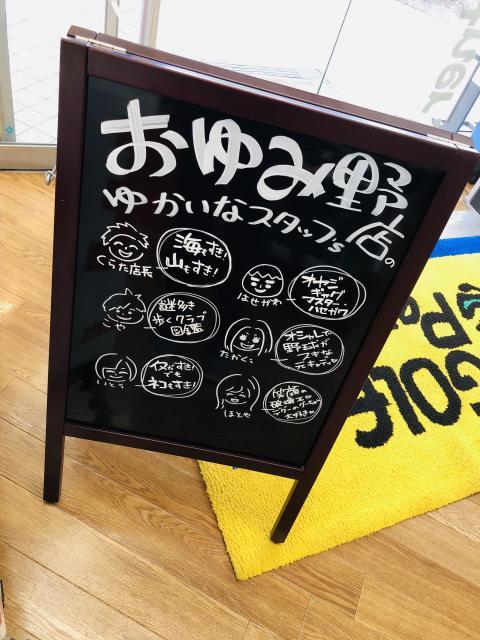 おゆみ野店の
ゆかいなスタッフs
くらた店長
海もすき!
山もすき!
はせがわ
オヤジ
ギャグ
マスター・
ハセガワ
こや
謎多き
歩くクラブ
図鑑
たかくら
オシャレで
野球が
スキな
元キャディ
いとう
イヌがすき!
でも
ネコもすき!
ほとや
笑顔の
破壊王
大好き
GOLF